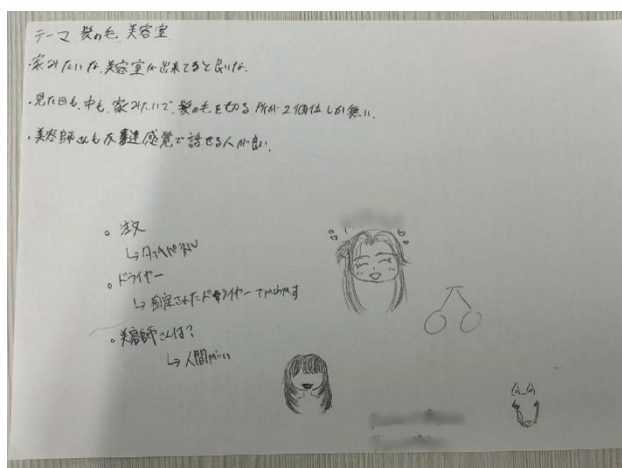 テーマ 髪の毛、美容室
・家みたいな、美容室が出来てると良いな。
・見た目も、中も、家みたいで、髪の毛を切る所が2個位しか無い。
・美容師さんも友達感覚で話せる人が良い。
。注文
↳タッチパネル
。ドライヤー
↳固定されたドライヤーでかわかす
。美容師さんは?
↳人間がいい